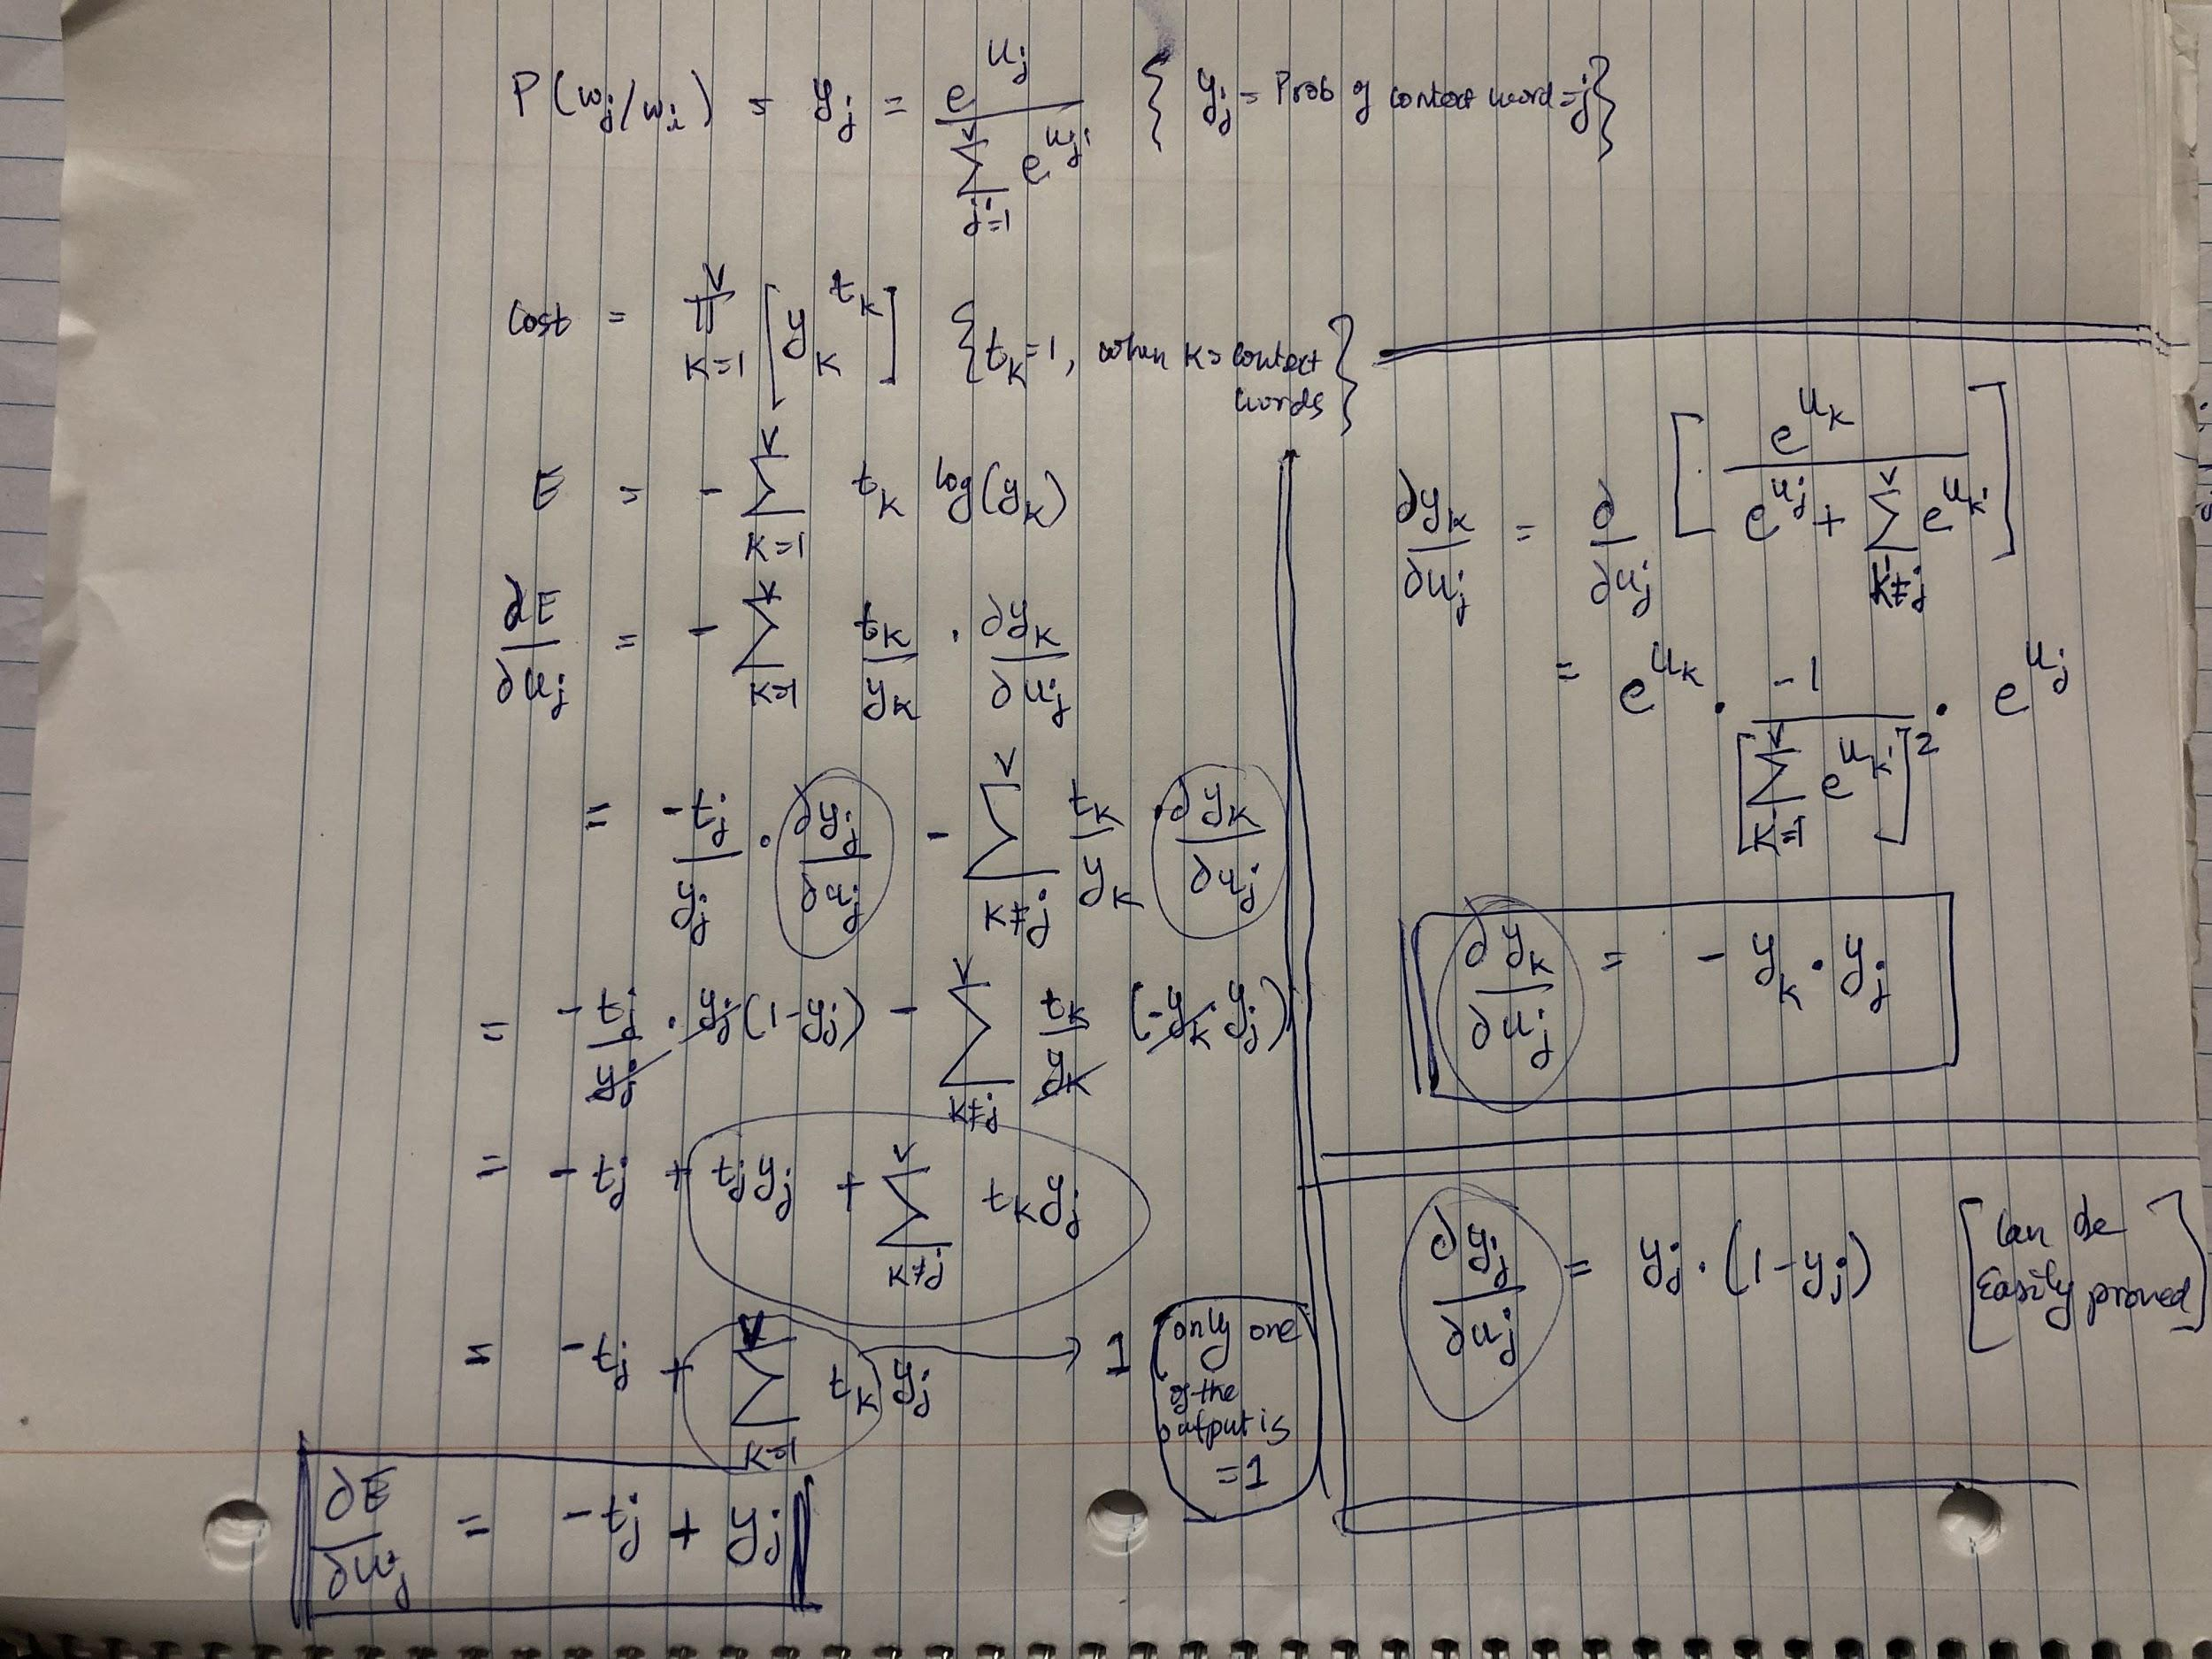 P(w_j/w_i) = y_j = e^{u_j} / Σ_{j'=1}^{V} e^{u_{j'}} { y_j = Prob of context word = j }
Cost = Π_{k=1}^{V} [ y_k^{t_k} ] { t_k = 1, when k = context words }
E = - Σ_{k=1}^{V} t_k log(y_k)
∂E/∂u_j = - Σ_{k=1}^{V} t_k/y_k · ∂y_k/∂u_j
= -t_j/y_j · ∂y_j/∂u_j - Σ_{k≠j}^{V} t_k/y_k · ∂y_k/∂u_j
= -t_j/y_j · y_j (1-y_j) - Σ_{k≠j}^{V} t_k/y_k (-y_k · y_j)
= -t_j + t_j y_j + Σ_{k≠j}^{V} t_k y_j
= -t_j + Σ_{k=1}^{V} t_k y_j → 1 (only one
of the
output is
= 1
∂E/∂u_j = -t_j + y_j
∂y_k/∂u_j = ∂/∂u_j [ e^{u_k} / ( e^{u_j} + Σ_{k'≠j}^{V} e^{u_{k'}} ) ]
= e^{u_k} · -1 / [ Σ_{k'=1}^{V} e^{u_{k'}} ]^2 · e^{u_j}
∂y_k/∂u_j = - y_k · y_j
∂y_j/∂u_j = y_j · (1-y_j) [ Can be
Easily proved ]